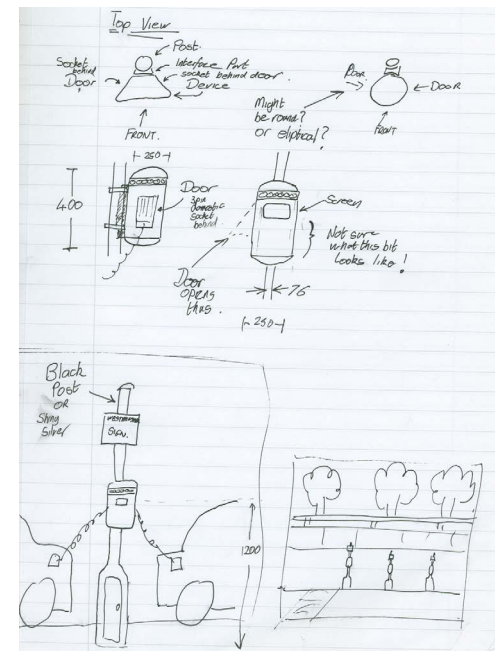 Top View
Post.
interface Port
socket behind door.
Device
Socket
behind
Door
FRONT.
Might
be round?
or eliptical?
Door
DOOR
FRONT
250
400
Door
3pin
domestic
socket
behind
Screen
Not sure
what this bit
looks like!
Door
opens
this.
76
250
Black
Post
OR
Shiny
Silver
SIGN.
1200